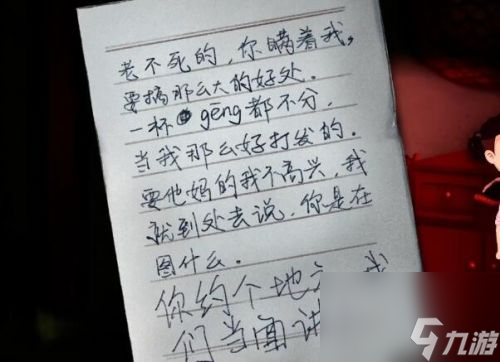 老不死的，你瞒着我，
要搞那么大的好处．
一杯gēng都不分，
当我那么好打发的．
要他妈的我不高兴，我
就到处去说．你是在
图什么。
你约个地
们当面
九游